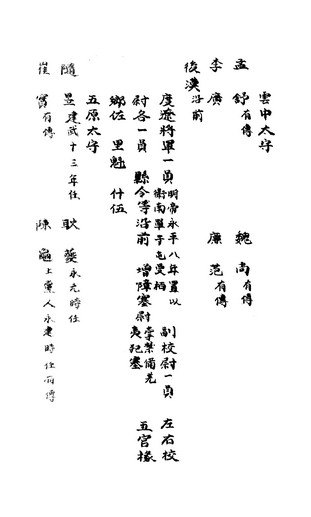 雲中太守
孟舒有傳 魏尚有傳
李廣 廉范有傳
後漢沿前
度遼將軍一員 明帝永平八年置以衛南單于屯曼栢 副校尉一員 左右校
尉各一員 縣令等沿前 增障塞尉 掌禁備羌夷犯塞 五官掾
鄉佐 里魁 什伍
五原太守
隨昱建武十三年任 耿夔永元時任
崔寔有傳 陳龜上黨人永建時任有傳